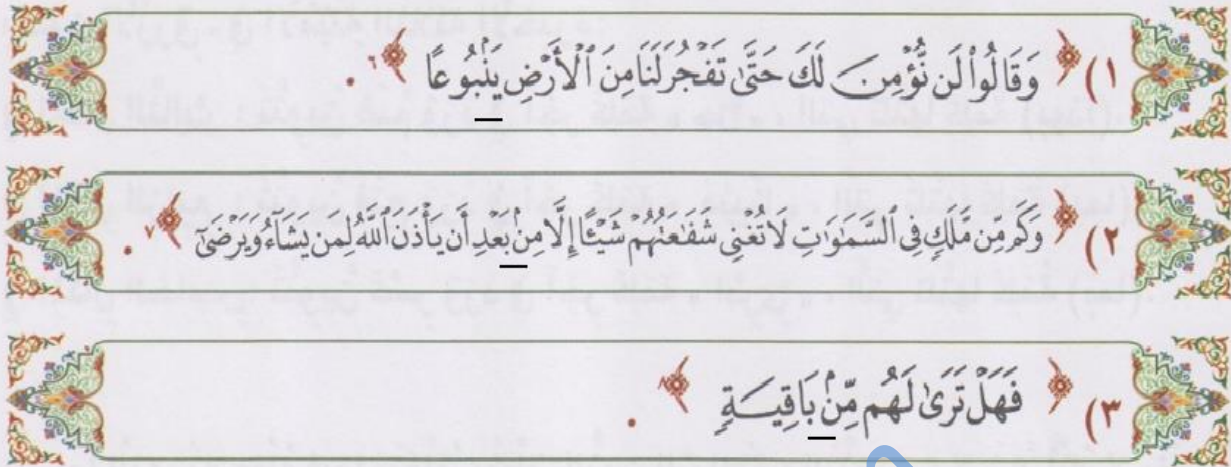 ١) ﴿ وَقَالُوا۟ لَن نُّؤْمِنَ لَكَ حَتَّىٰ تَفْجُرَ لَنَا مِنَ ٱلْأَرْضِ يَنۢبُوعًا ﴾٦ .
٢) ﴿ وَكَم مِّن مَّلَكٍ فِى ٱلسَّمَٰوَٰتِ لَا تُغْنِى شَفَٰعَتُهُمْ شَيْـًٔا إِلَّا مِنۢ بَعْدِ أَن يَأْذَنَ ٱللَّهُ لِمَن يَشَآءُ وَيَرْضَىٰٓ ﴾٧ .
٣) ﴿ فَهَلْ تَرَىٰ لَهُم مِّنۢ بَاقِيَةٍ ﴾٨ .